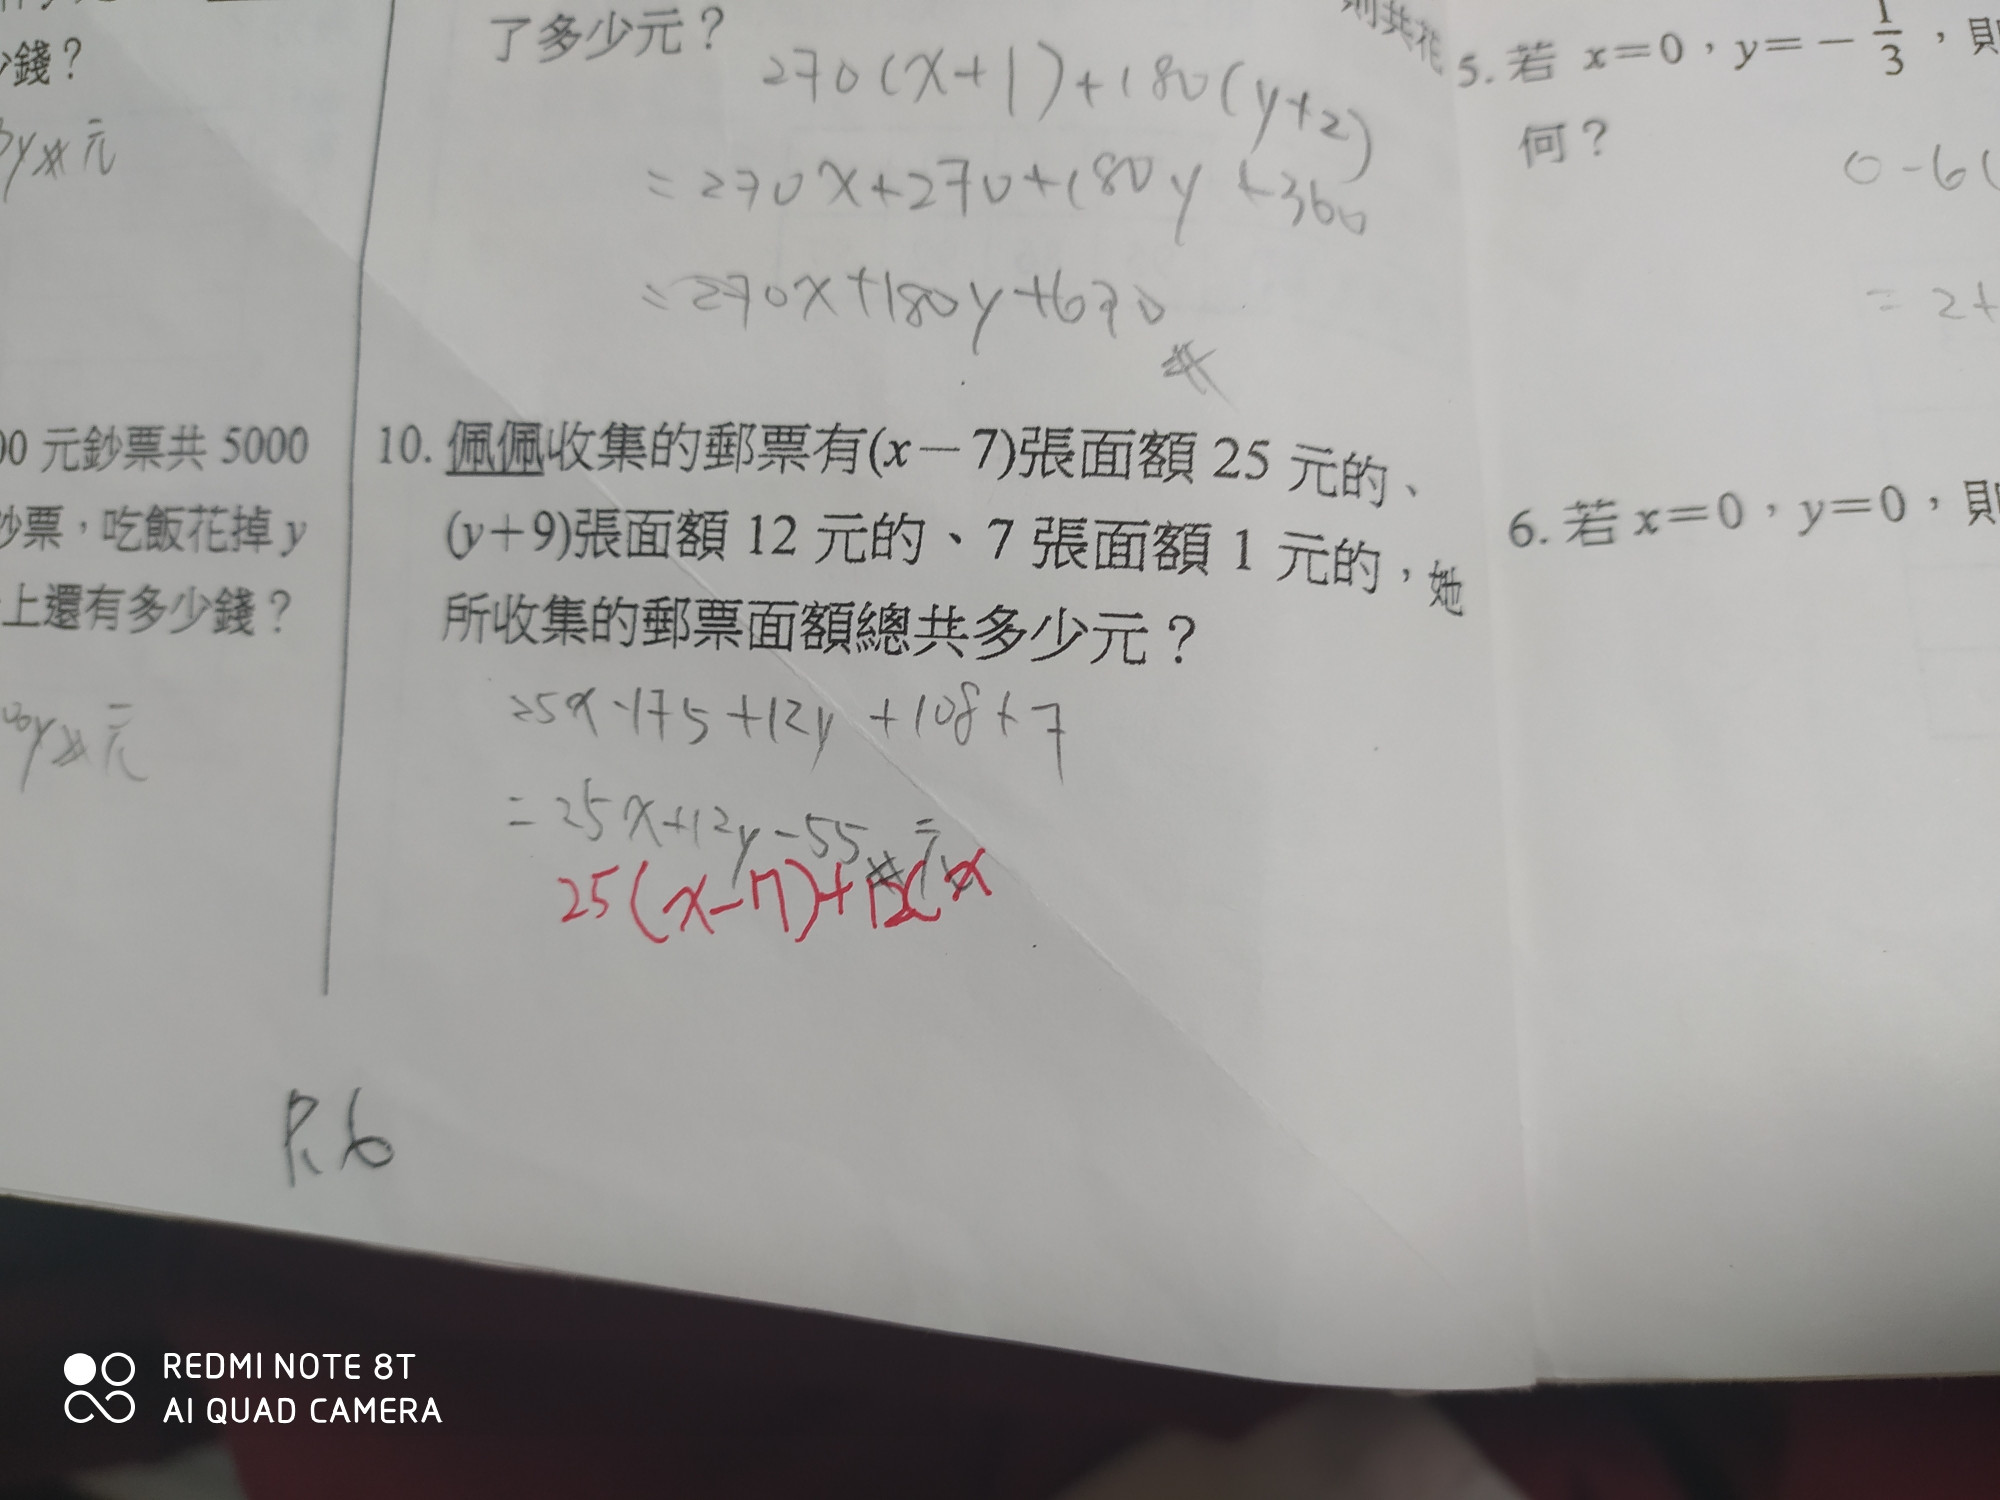 少錢？
3y 元
00 元鈔票共 5000
鈔票，吃飯花掉 y
上還有多少錢？
00y 元
了多少元？
則共花
270(x+1)+180(y+2)
=270x+270+180y+360
=270x+180y+630
10. 佩佩收集的郵票有(x－7)張面額 25 元的、
(y＋9)張面額 12 元的、7 張面額 1 元的，她
所收集的郵票面額總共多少元？
25x-175+12y+108+7
=25x+12y-55 元
25(x-7)+12(x
P.6
5. 若 x＝0，y＝－1/3，則
何？
0-6(
=2+
6. 若 x＝0，y＝0，則
REDMI NOTE 8T
AI QUAD CAMERA